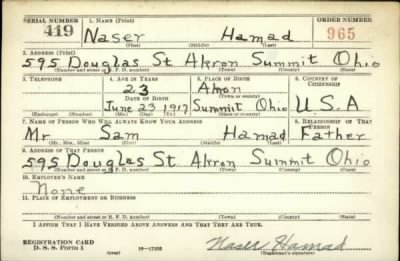 SERIAL NUMBER 1. NAME (Print) ORDER NUMBER
419 Naser Hamad 965
(First) (Middle) (Last)
2. ADDRESS (Print)
595 Douglas St Akron Summit Ohio
(Number and street or R. F. D. number) (Town) (County) (State)
3. TELEPHONE 4. AGE IN YEARS 5. PLACE OF BIRTH 6. COUNTRY OF CITIZENSHIP
23 Akron
DATE OF BIRTH (Town or county)
June 23 1917 Summit Ohio U.S.A
(Exchange) (Number) (Mo.) (Day) (Yr.) (State or country)
7. NAME OF PERSON WHO WILL ALWAYS KNOW YOUR ADDRESS 8. RELATIONSHIP OF THAT PERSON
Mr Sam Hamad Father
(Mr., Mrs., Miss) (First) (Middle) (Last)
9. ADDRESS OF THAT PERSON
595 Douglas St Akron Summit Ohio
(Number and street or R. F. D. number) (Town) (County) (State)
10. EMPLOYER'S NAME
None
11. PLACE OF EMPLOYMENT OR BUSINESS
(Number and street or R. F. D. number) (Town) (County) (State)
I AFFIRM THAT I HAVE VERIFIED ABOVE ANSWERS AND THAT THEY ARE TRUE.
REGISTRATION CARD
D. S. S. Form 1 (over) Naser Hamad
(Registrant's signature)